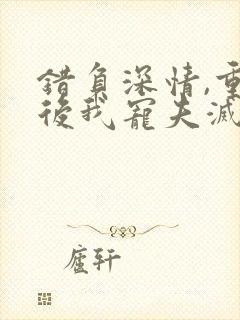 錯負深情,重
後我寵夫滅
廬軒